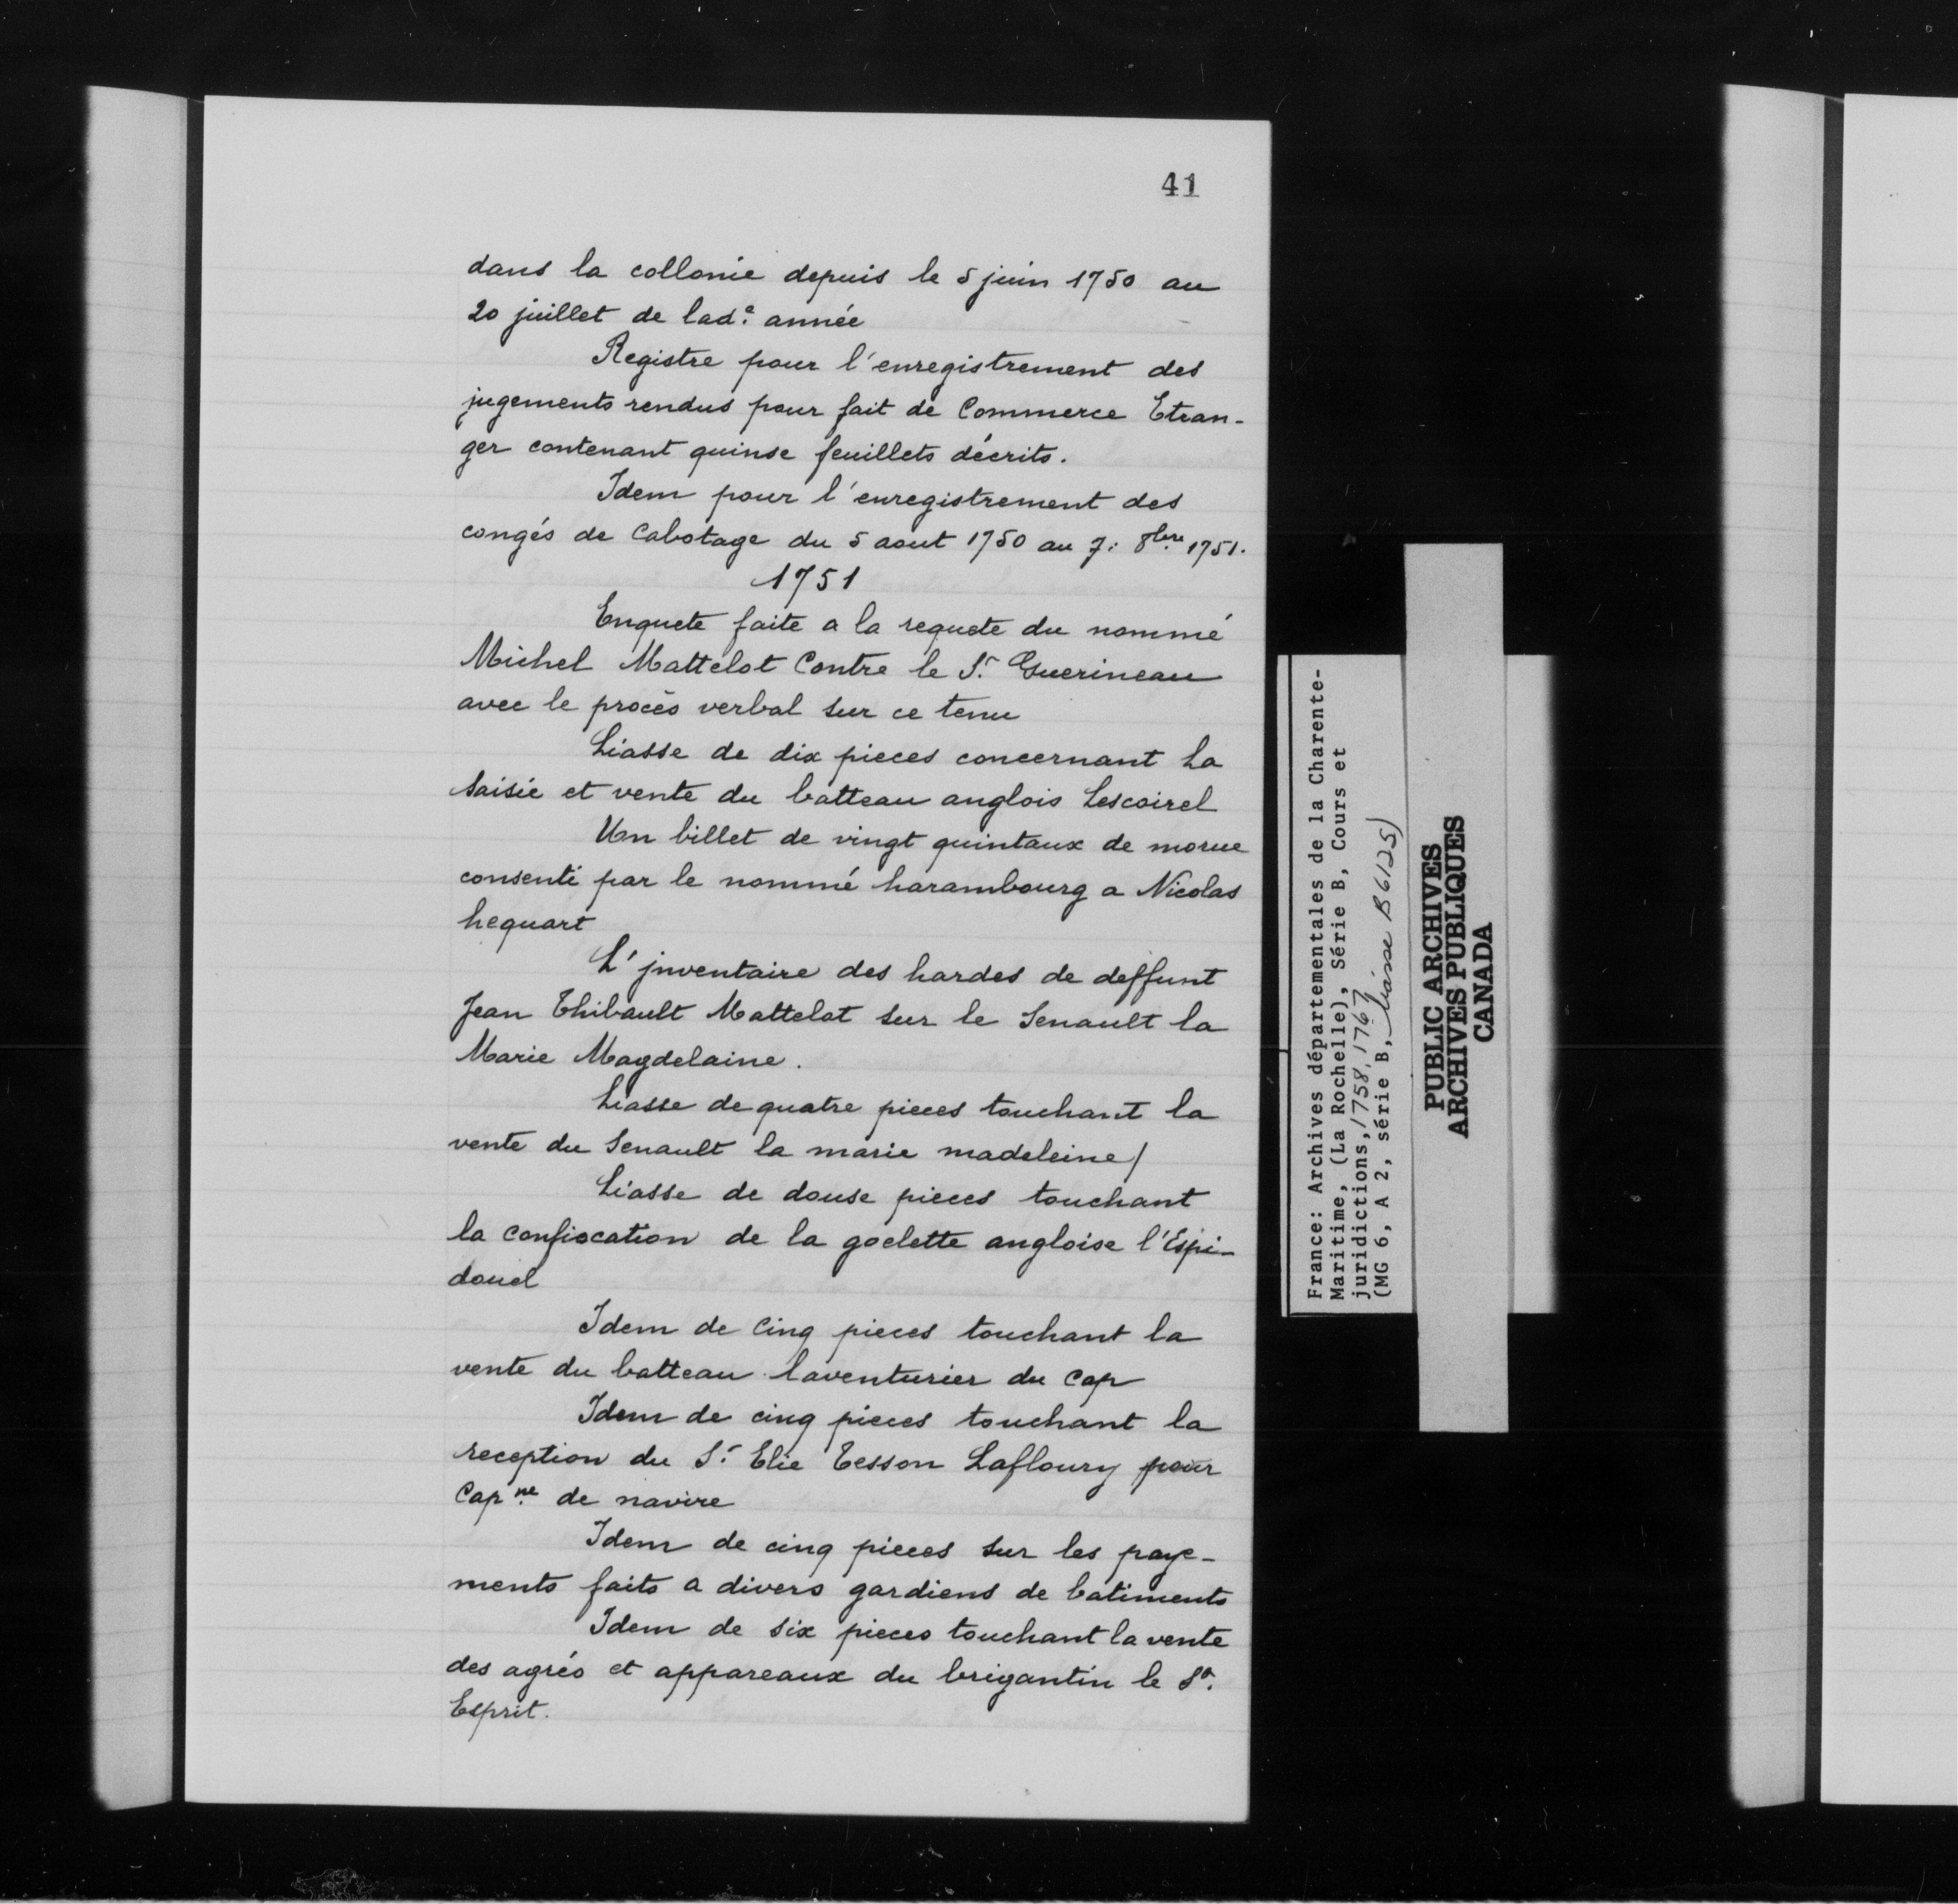 41
dans la collonie depuis le 5 juin 1750 au
20 juillet de lad.e année
Registre pour l'enregistrement des
jugements rendus pour fait de Commerce Etran-
ger contenant quinse feuillets décrits.
Idem pour l'enregistrement des
congés de Cabotage du 5 aout 1750 au 7: 8bre 1751.
1751
Enquete faite a la requete du nommé
Michel Mattelot Contre le S.r Guerineau
avec le procès verbal sur ce tenu
Liasse de dix pieces concernant La
saisie et vente du batteau anglois Lescoirel
Un billet de vingt quintaux de morue
consenti par le nommé harambourg a Nicolas
hequart
L'jnventaire des hardes de deffunt
Jean Thibault Mattelot sur le Senault la
Marie Magdelaine.
Liasse de quatre pieces touchant la
vente du Senault la marie madeleine/
Liasse de douse pieces touchant
la confiscation de la goelette angloise l'Espi-
douel
Idem de Cinq pieces touchant la
vente du batteau laventurier du Cap
Idem de cinq pieces touchant la
reception du S.r Elie Tesson Lafloury pour
Cap.ne de navire
Idem de cinq pieces sur les paye-
ments faits a divers gardiens de batiments
Idem de six pieces touchant la vente
des agrés et appareaux du brigantin le St.
Esprit.
France: Archives départementales de la Charente-
Maritime, (La Rochelle), Série B, Cours et
juridictions, 1758, 1767
(MG 6, A 2, série B, liasse B6125)
PUBLIC ARCHIVES
ARCHIVES PUBLIQUES
CANADA